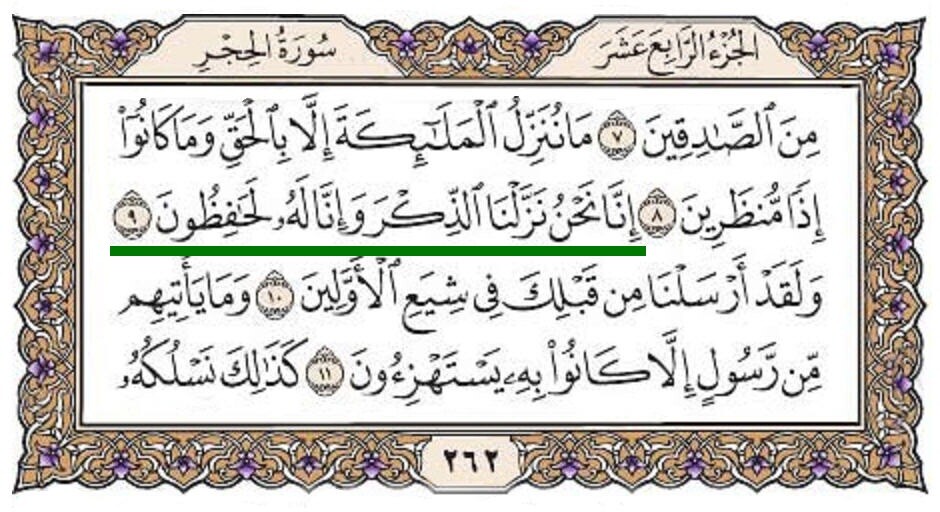 الجُزْءُ الرَّابِعَ عَشَرَ
سُورَةُ الحِجْرِ
مِنَ ٱلصَّـٰدِقِينَ ٧ مَا نُنَزِّلُ ٱلْمَلَـٰٓئِكَةَ إِلَّا بِٱلْحَقِّ وَمَا كَانُوٓا۟
إِذًا مُّنظَرِينَ ٨ إِنَّا نَحْنُ نَزَّلْنَا ٱلذِّكْرَ وَإِنَّا لَهُۥ لَحَـٰفِظُونَ ٩
وَلَقَدْ أَرْسَلْنَا مِن قَبْلِكَ فِى شِيَعِ ٱلْأَوَّلِينَ ١٠ وَمَا يَأْتِيهِم
مِّن رَّسُولٍ إِلَّا كَانُوا۟ بِهِۦ يَسْتَهْزِءُونَ ١١ كَذَٰلِكَ نَسْلُكُهُۥ
٢٦٢